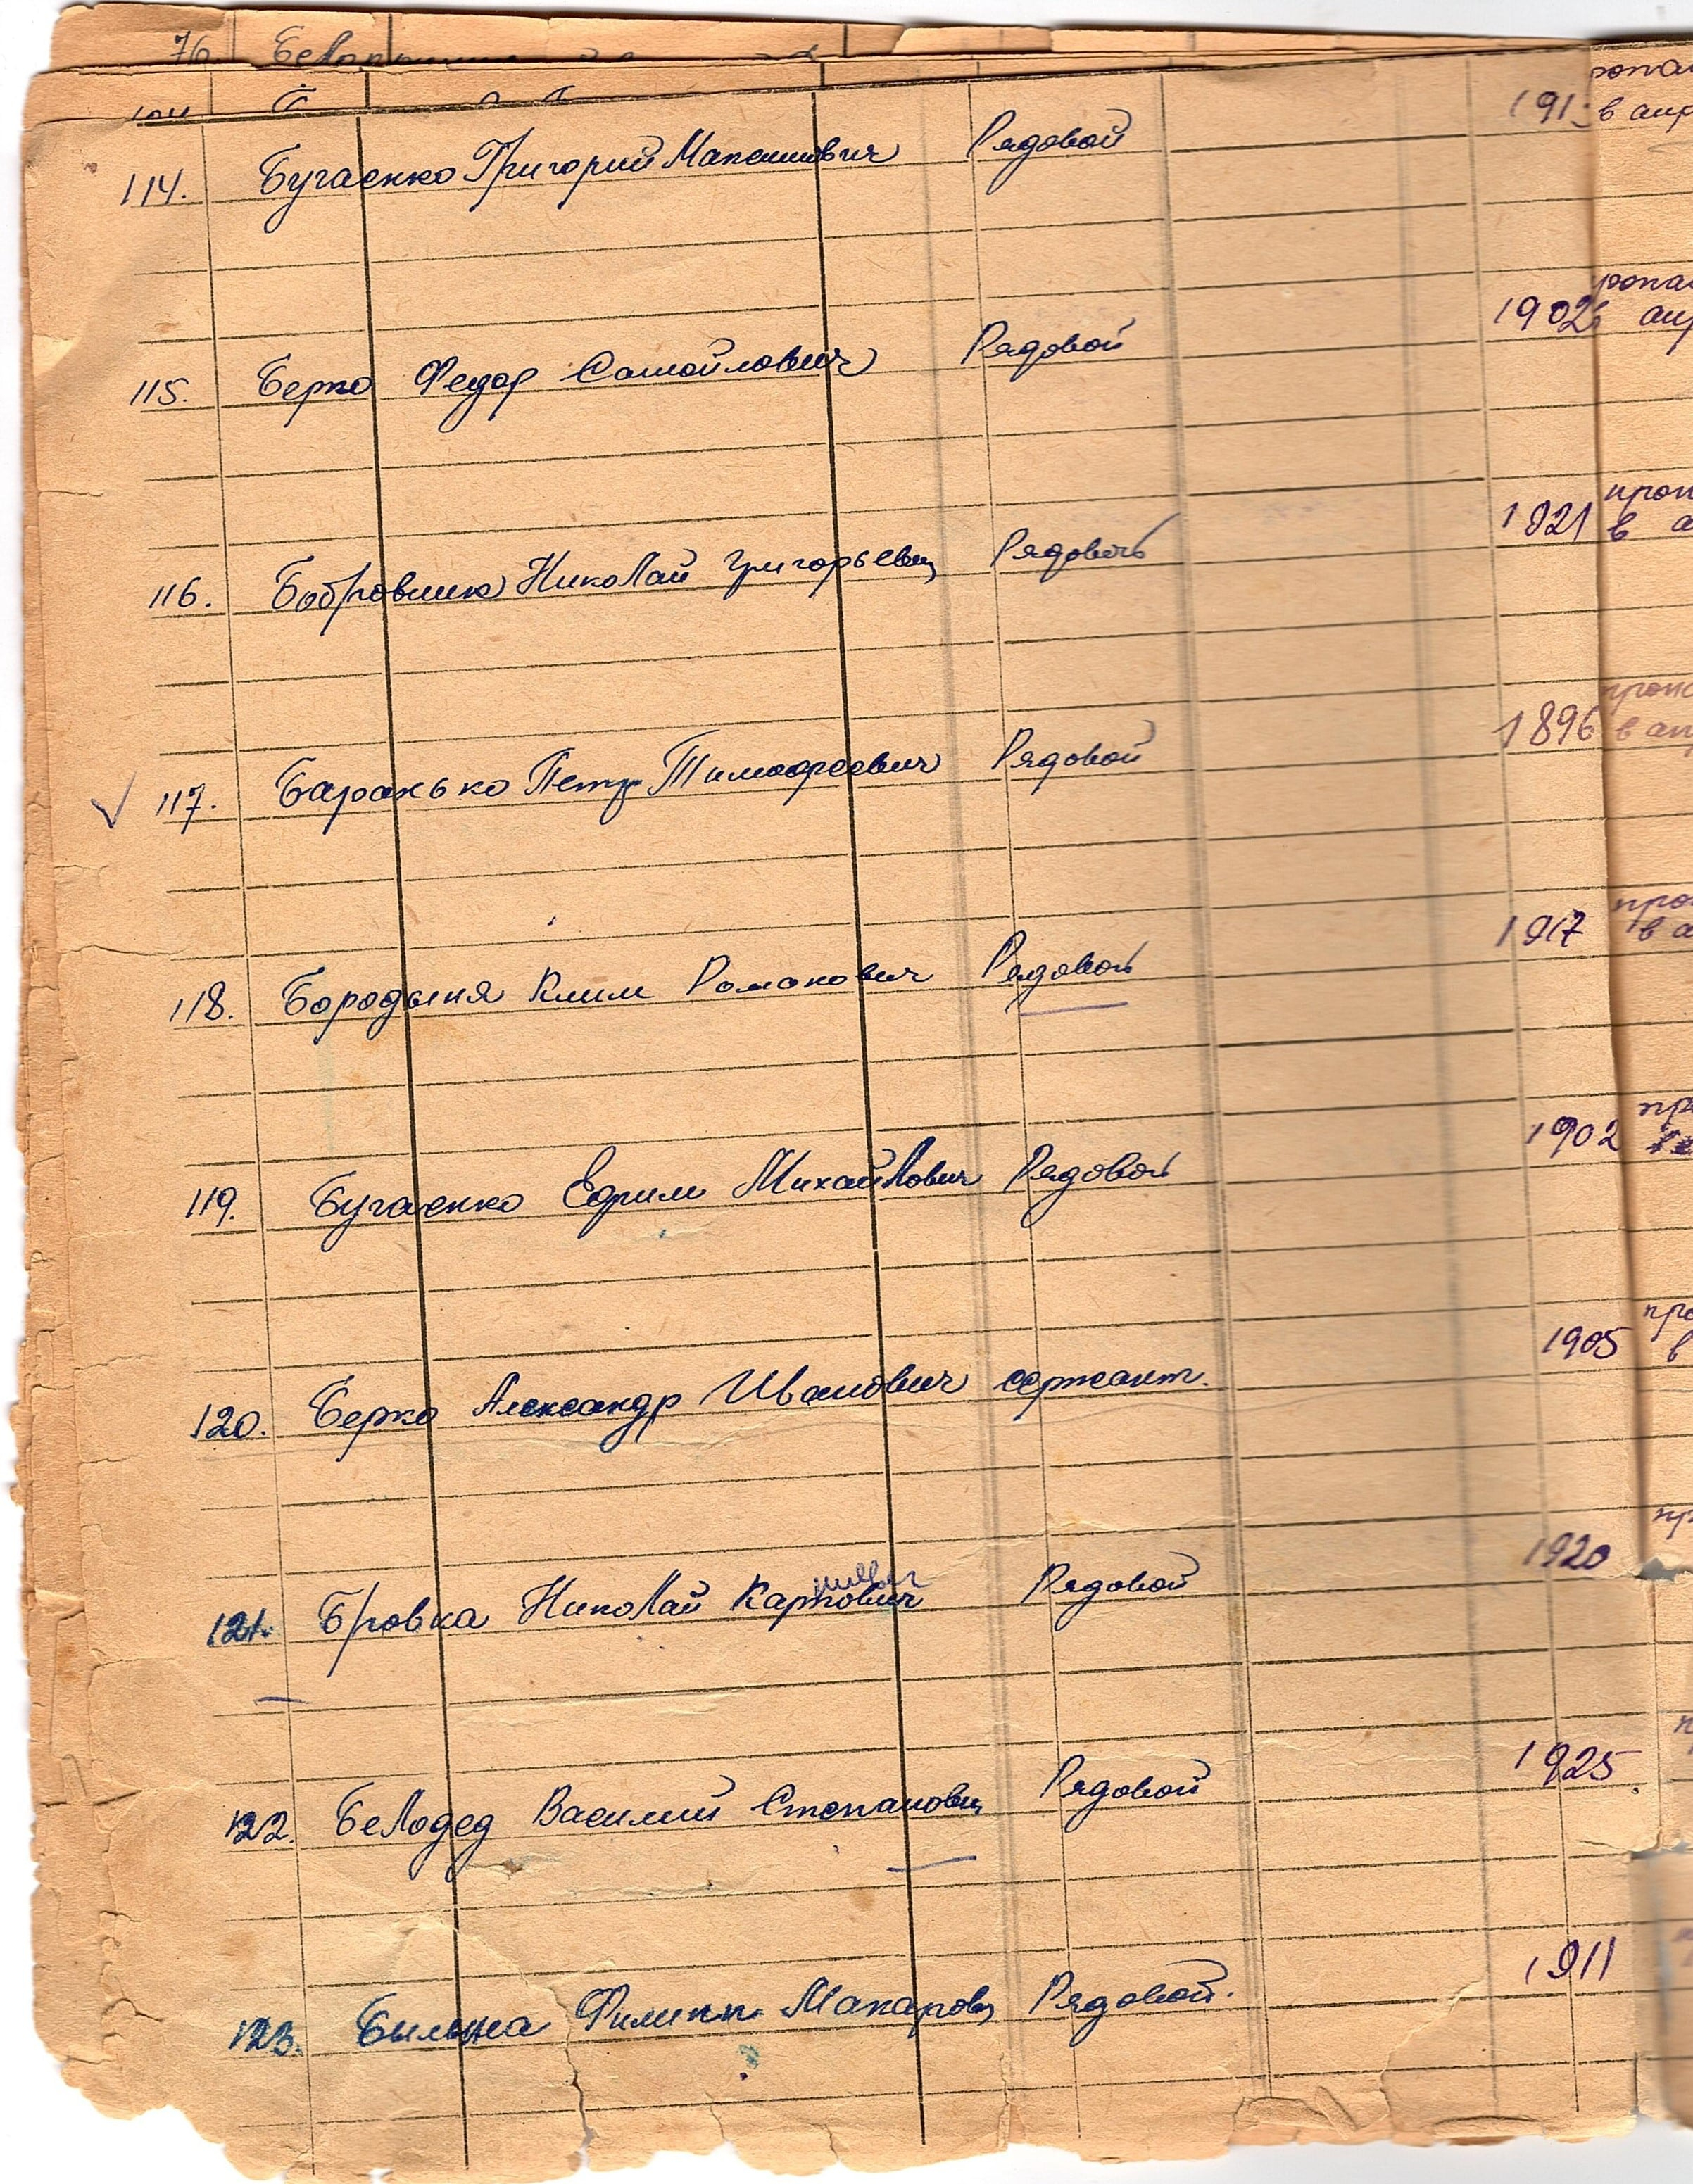 76
114. Бугаенко Григорий Максимович Рядовой 191 в апр
115. Берко Федор Самойлович Рядовой 1902
116. Бобровник Николай Григорьевич Рядовой 1921 в а
117. Баранько Петр Тимофеевич Рядовой 1896 в ап
118. Бородыня Клим Романович Рядовой 1917 в а
119. Бугаенко Ефрим Михайлович Рядовой 1902
120. Берко Александр Иванович сержант. 1905 в
121. Бровка Николай Карпович Рядовой 1920
122. Белодед Василий Степанович Рядовой 1925.
123. Филипп Макарович Рядовой. 1911